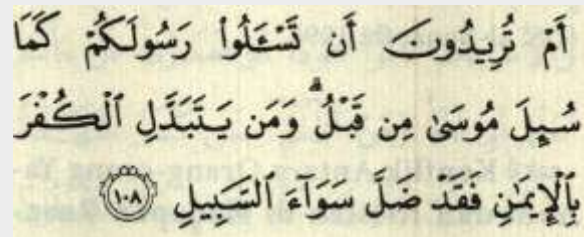 أَمْ تُرِيدُونَ أَن تَسْـَٔلُوا۟ رَسُولَكُمْ كَمَا
سُئِلَ مُوسَىٰ مِن قَبْلُ ۗ وَمَن يَتَبَدَّلِ ٱلْكُفْرَ
بِٱلْإِيمَٰنِ فَقَدْ ضَلَّ سَوَآءَ ٱلسَّبِيلِ ١٠٨